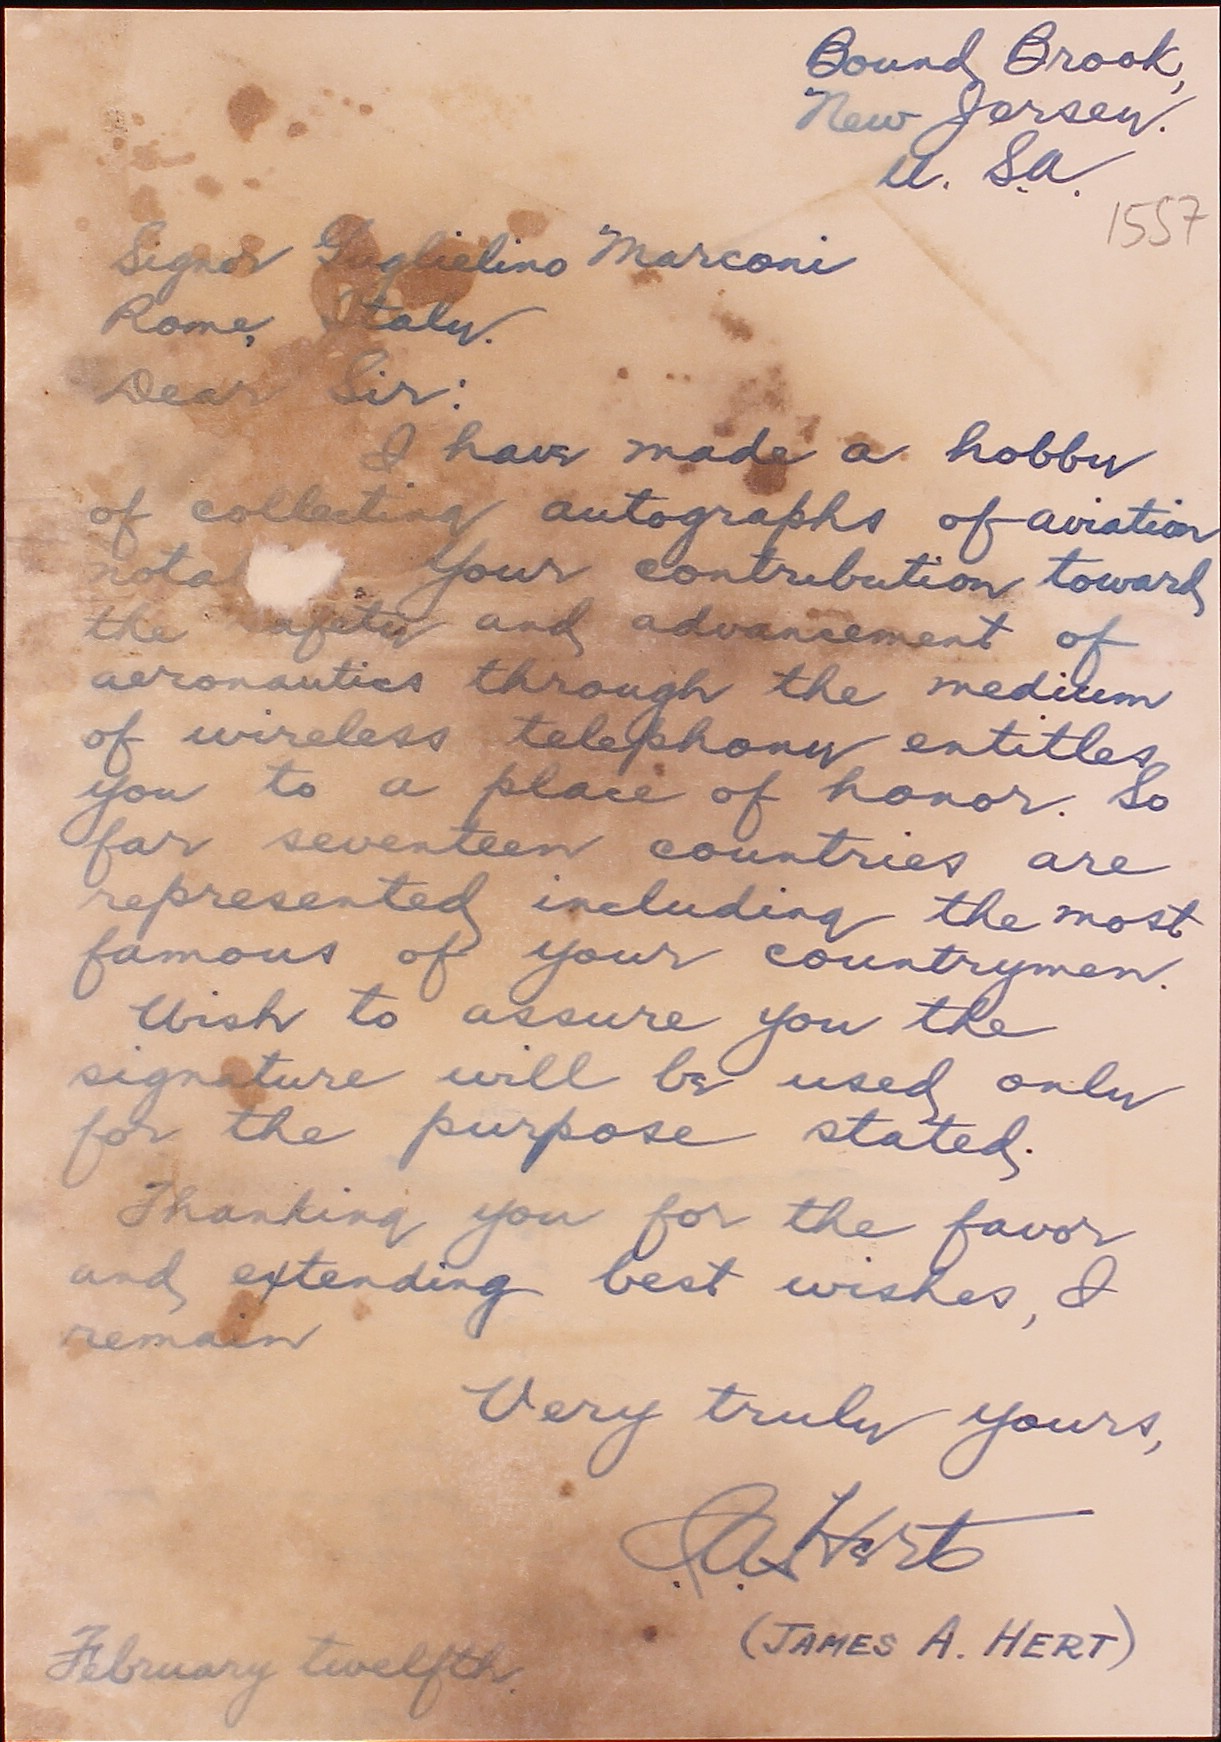 Bound Brook,
New Jersey.
U. S.A.
1557
Signor Guglielino Marconi
Rome, Italy.
Dear Sir:
I have made a hobby
of collecting autographs of aviation
nota . Your contribution toward
the afety and advancement of
aeronautics through the medium
of wireless telephony entitles
you to a place of honor. So
far seventeen countries are
represented including the most
famous of your countrymen.
Wish to assure you the
signature will be used only
for the purpose stated.
Thanking you for the favor
and extending best wishes, I
remain
Very truly yours,
J.A. Hert
(JAMES A. HERT)
February twelfth.